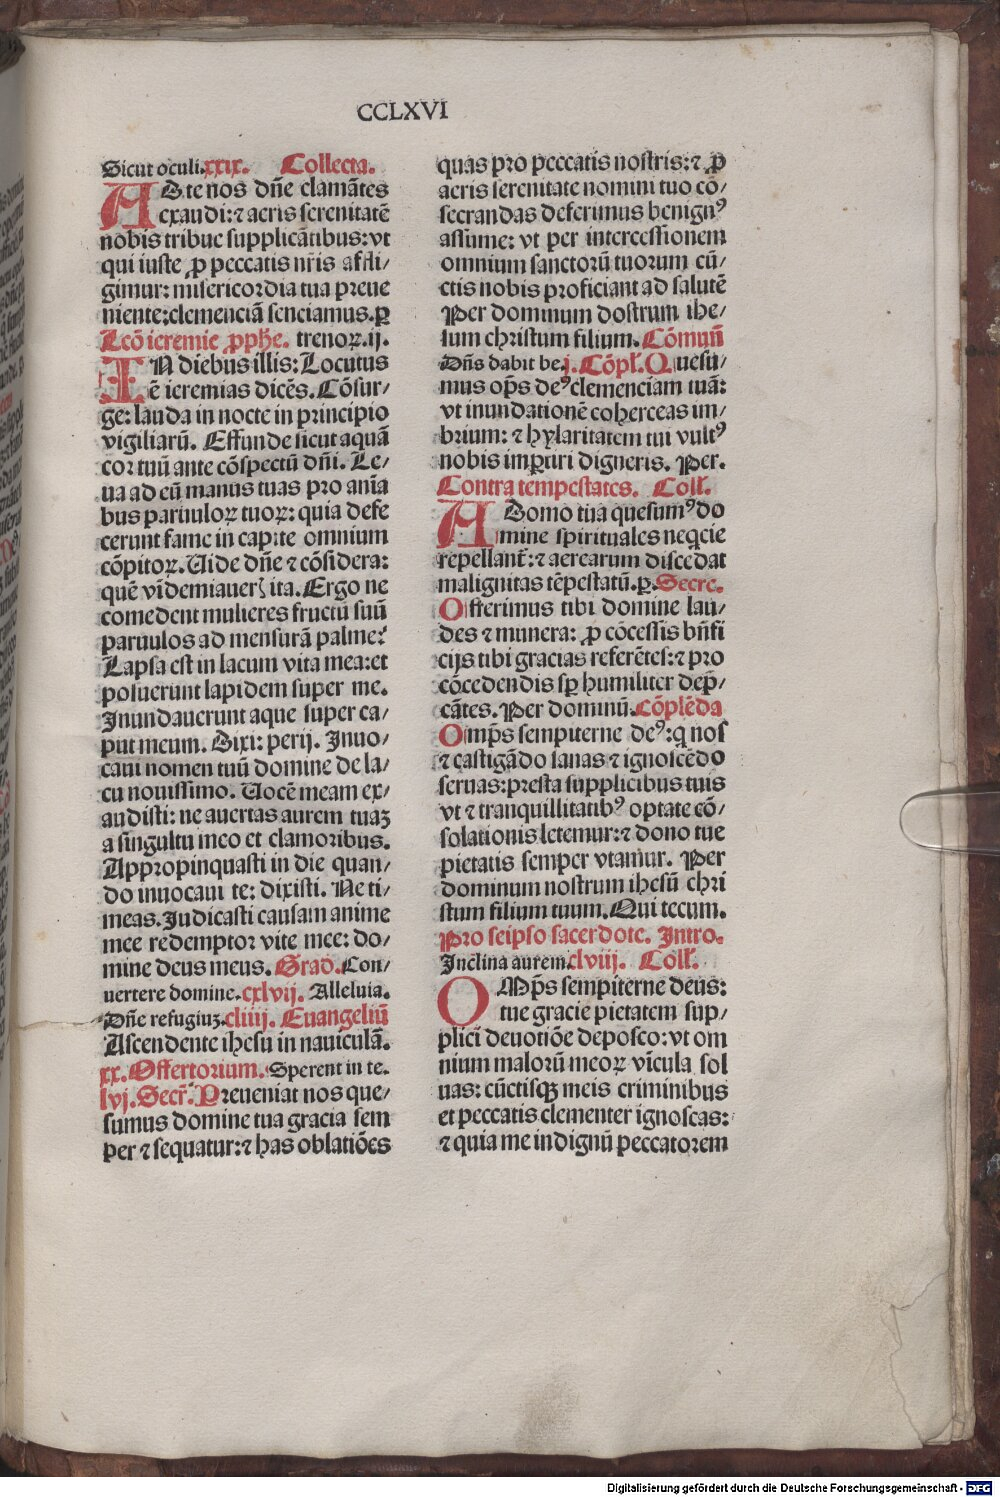 CCLXVI
Sicut oculi.xxix. Collecta.
AD te nos dñe clamãtes
exaudi:⁊ aeris serenitatẽ
nobis tribue supplicãtibus:vt
qui iuste ꝓ peccatis nr̃is affli/
gimur: misericordia tua preue
niente:clemenciã senciamus.ꝑ
Lcõ ieremie ꝓph̃e. trenoꝝ.ij.
IN diebus illis: Locutus
ẽ ieremias dicẽs. Cõsur/
ge: lauda in nocte in principio
vigiliarũ. Effunde sicut aquã
cor tuũ ante cõspectũ dñi. Le/
ua ad eũ manus tuas pro aĩa
bus paruuloꝝ tuoꝝ: quia defe
cerunt fame in capite omnium
cõpitoꝝ. Uide dñe ⁊ cõsidera:
quẽ vĩdemiaueris ita. Ergo ne
comedent mulieres fructũ suũ
paruulos ad mensurã palme?
Lapsa est in lacum vita mea:et
posuerunt lapidem super me.
Inundauerunt aque super ca/
put meum. Dixi: perij. Inuo/
caui nomen tuũ domine de la/
cu nouissimo. Uocẽ meam ex/
audisti: ne auertas aurem tuaȝ
a singultu meo et clamoribus.
Appropinquasti in die quan/
do inuocaui te: dixisti. Ne ti/
meas. Iudicasti causam anime
mee redemptor vite mee: do/
mine deus meus. Grad. Con/
uertere domine.cxlvij. Alleluia.
Dñe refugiuȝ.cliiij. Euangeliũ
Ascendente ihesu in nauiculã.
xx. Offertorium. Sperent in te.
lvj. Secr̃. Preueniat nos que/
sumus domine tua gracia sem
per ⁊ sequatur:⁊ has oblatiões
quas pro peccatis nostris:⁊ ꝓ
aeris serenitate nomini tuo cõ/
secrandas deferimus benignꝰ
assume: vt per intercessionem
omnium sanctorũ tuorum cũ/
ctis nobis proficiant ad salutẽ
Per dominum nostrum ihe/
sum christum filium. Cõmuñ
Dñs dabit be.j. Cõpl̃. Quesu/
mus op̃s deꝰ clemenciam tuã:
vt inundationẽ coherceas im/
brium: ⁊ hylaritatem tui vultꝰ
nobis imꝑtiri digneris. Per.
Contra tempestates. Coll̃.
A Domo tua quesumꝰ do
mine spirituales neqcie
repellant̃:⁊ aerearum discedat
malignitas tẽpestatũ.ꝑ. Secre.
Offerimus tibi domine lau/
des ⁊ munera: ꝓ cõcessis bñfi
cijs tibi gracias referẽtes:⁊ pro
cõcedendis sꝑ humiliter dep̃/
cãtes. Per dominũ. Cõplẽda
Omp̃s sempiterne deꝰ:q nos
⁊ castigãdo sanas ⁊ ignoscẽdo
seruas:presta supplicibus tuis
vt ⁊ tranquillitatibꝰ optate cõ/
solationis letemur:⁊ dono tue
pietatis semper vtamur. Per
dominum nostrum ihesũ chri
stum filium tuum. Qui tecum.
Pro seipso sacerdote. Intro.
Inclina aurem.clviij. Coll̃.
OMp̃s sempiterne deus:
tue gracie pietatem sup/
plici deuotiõe deposco: vt om
nium malorũ meoꝝ vĩcula sol
uas: cũctisqȝ meis criminibus
et peccatis clementer ignoscas:
⁊ quia me indignũ peccatorem
Digitalisierung gefördert durch die Deutsche Forschungsgemeinschaft - DFG